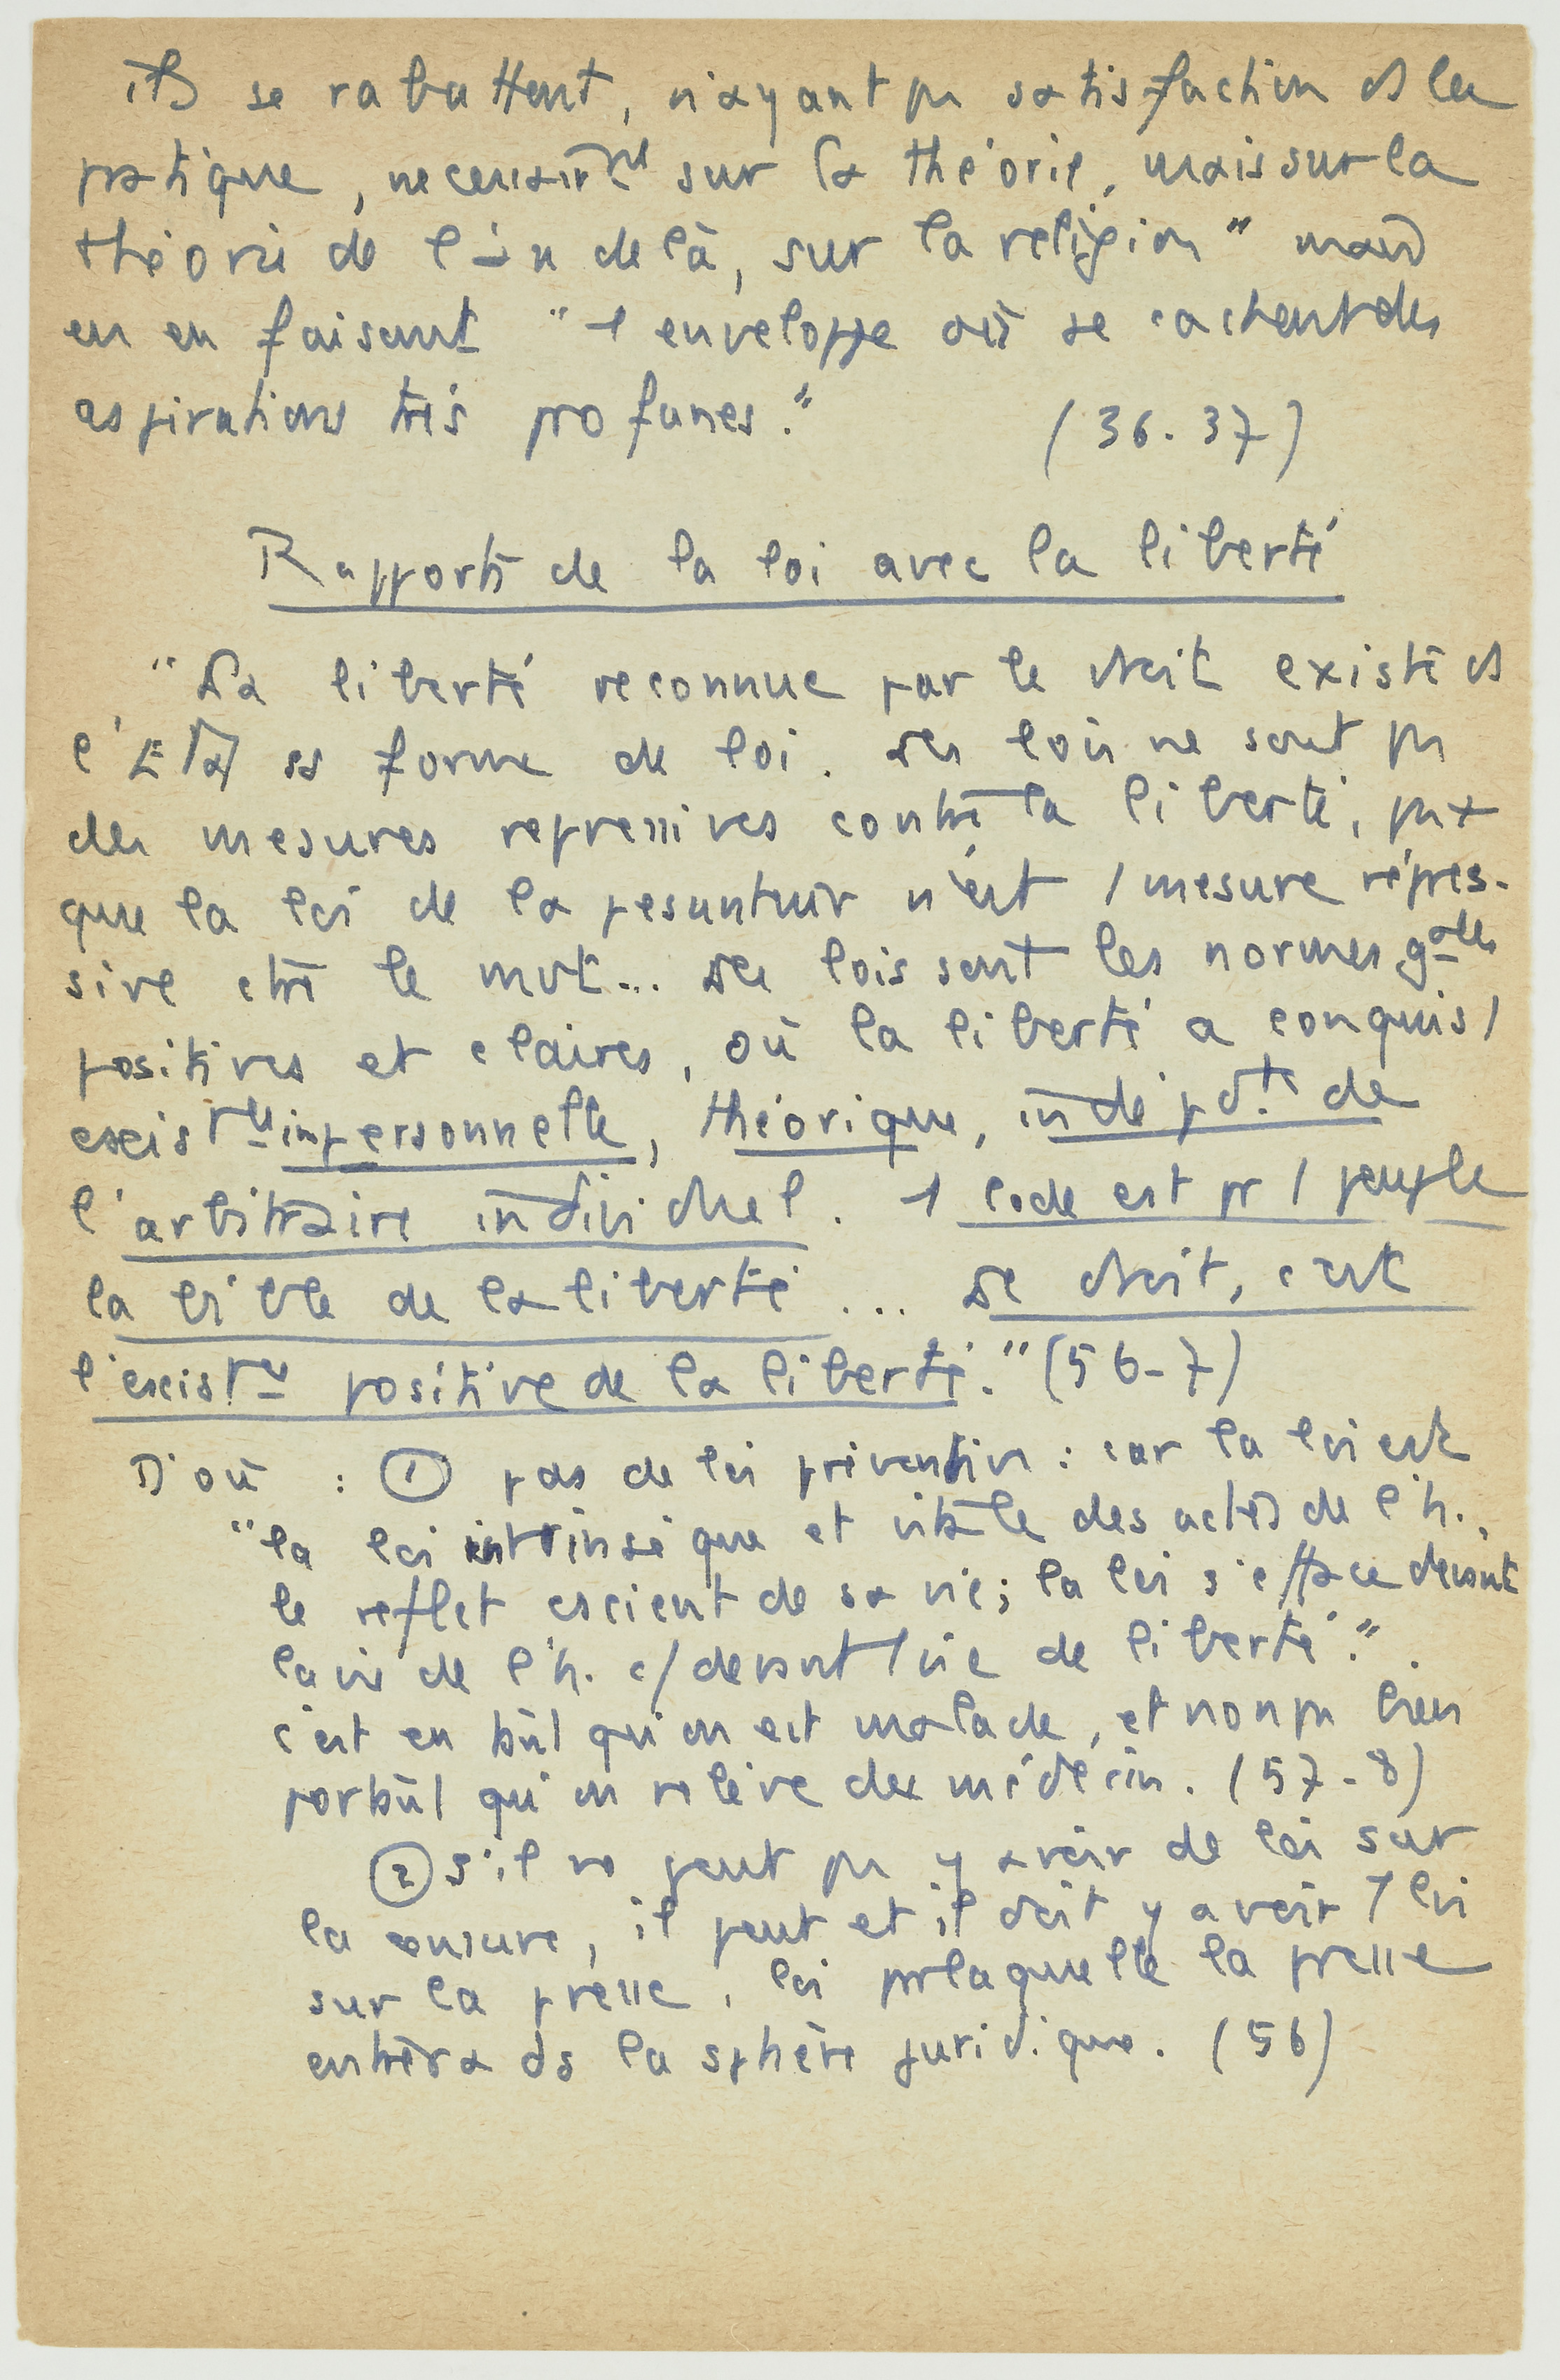 ils se rabattent, n'ayant pas satisfaction ds la
pratique, nécessairt sur la théorie, mais sur la
théorie de l'au delà, sur la religion" mais
en en faisant "1 enveloppe où se cachent des
aspirations très profanes."
(36-37)
Rapports de la loi avec la liberté
"La liberté reconnue par le droit existe ds
l'Etat ss forme de loi. Les lois ne sont pas
des mesures repressives contre la liberté, pas +
que la loi de la pesanteur n'est 1 mesure répres-
sive ctre le mvt... Les lois sont les normes gales
positives et claires, où la liberté a conquis 1
existce impersonnelle, théorique, indépdte de
l'arbitraire individuel. 1 code est pr 1 peuple
la bible de la liberté ... Le droit, c'est
l'existce positive de la liberté." (56-7)
D'où : ① pas de loi préventive : car la loi est
"la loi intrinsèque et vitale des actes de l'h.,
le reflet cscient de sa vie; la loi s'efface devant
la vie de l'h. c/ devant 1 vie de liberté."
c'est en tant qu'on est malade, et non pas bien
portant qu'on relève des médecins. (57-8)
② S'il ne peut pas y avoir de loi sur
la censure, il peut et il doit y avoir 1 loi
sur la presse, loi par laquelle la presse
entrera ds la sphère juridique. (56)